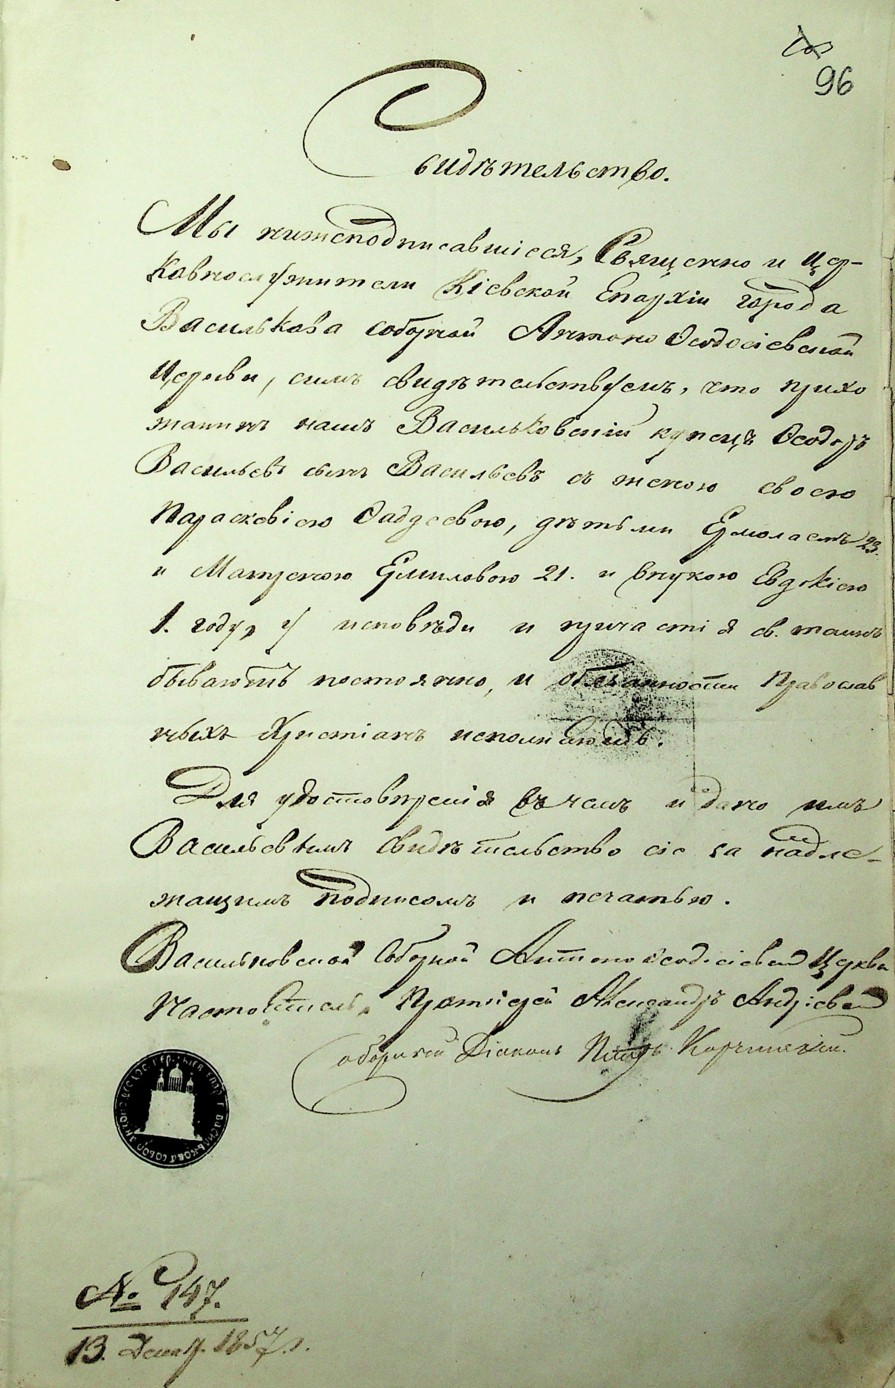 96
Свидѣтельство.
Мы нижеподписавшіеся, Священно и цер-
ковнослужители Кіевской Епархіи города
Василькова соборной Антоно Ѳеодосіевской
Церкви, симъ свидѣтельствуемъ, что прихо
жанинъ нашъ Васильковскій купецъ Ѳеодоръ
Васильевъ сынъ Васильевъ съ женою своею
Параскевіею Фаддеевою, дѣтьми Ермолаемъ 23.
и Матреною Ермиловою 21. и внукою Евдокіею
1. году, у исповѣди и причастія св. таинъ
бываютъ постоянно, и обязанности Православ
ныхъ Христіанъ исполняютъ.
Для удостовѣренія въ чемъ и дано имъ
Васильевымъ свидѣтельство сіе за надле-
жащимъ подписомъ и печатью.
Васильковской Соборной Антоно Ѳеодосіевской Церкви
Настоятель, Протоіерей Александръ Андріевскій
Соборный Діаконъ Петръ
№ 147.
13. Декабр. 1857 г.